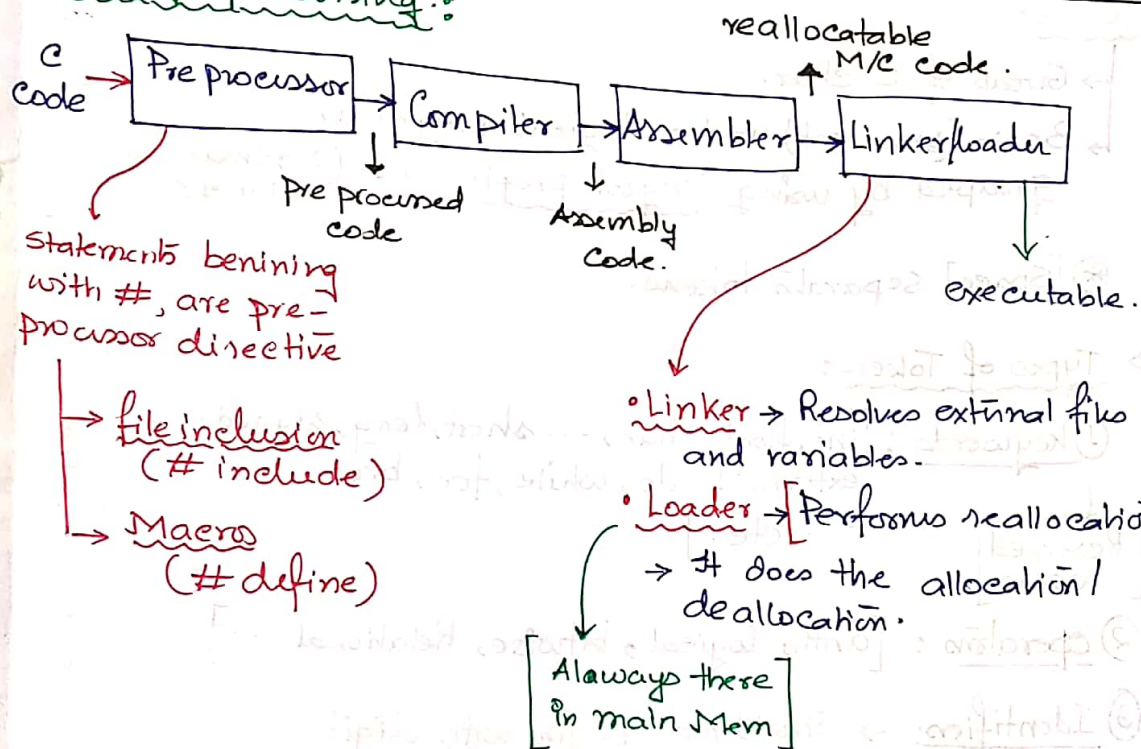 C
Code
Pre processor
Compiler
Assembler
Linker/loader
reallocatable
M/C code.
Pre processed
code
Assembly
Code.
executable.
Statements benining
with #, are pre-
processor directive
file inclusion
(# include)
Macros
(# define)
• Linker → Resolves external files
and variables.
• Loader → [Performs reallocatio
→ It does the allocation/
deallocation.
[Alaways there
in main Mem]